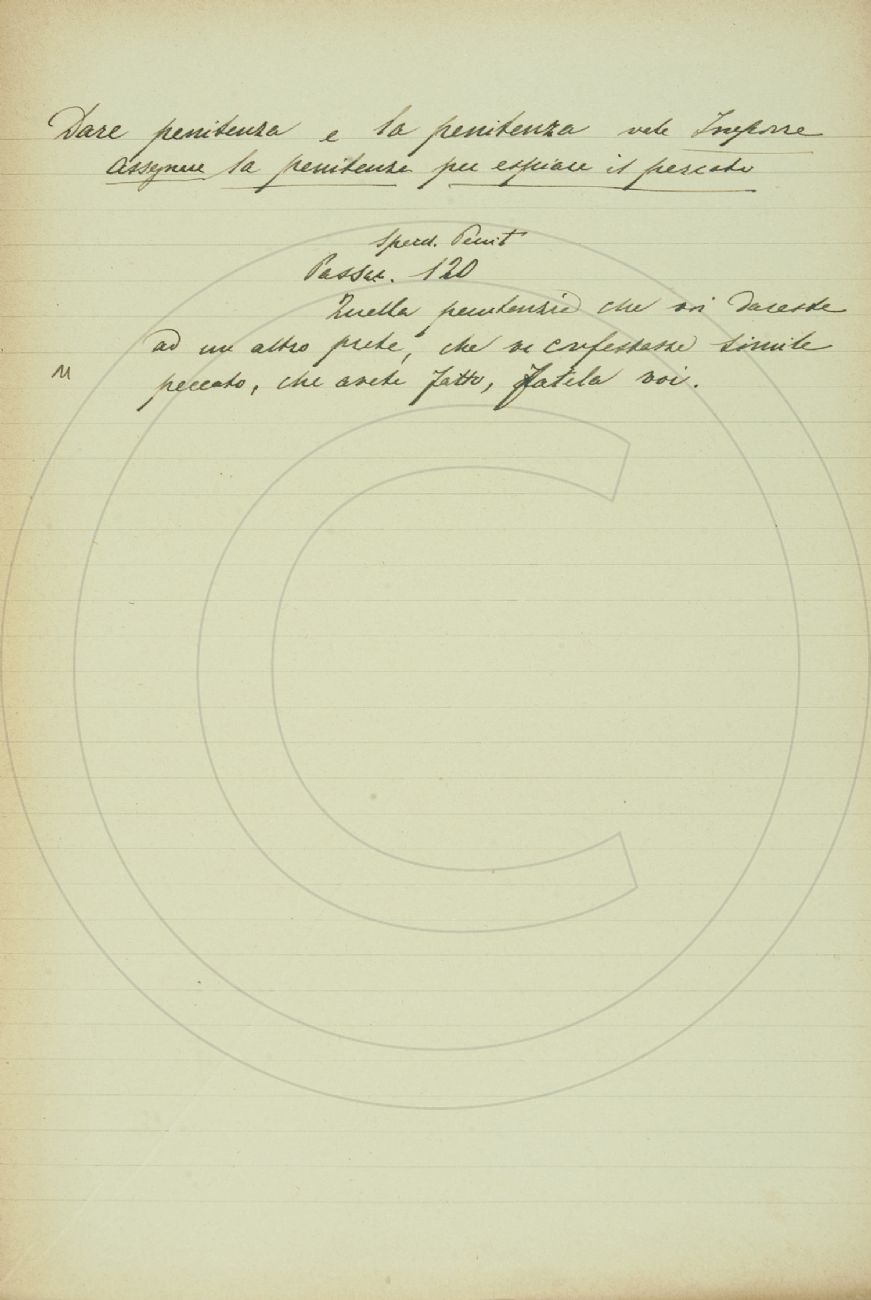 Dare penitenza e la penitenza vale Imporre
Assegnare la penitenza per espiare il peccato
Specch. Penit
Passav. 120
Quella penitenzia che voi dareste
ad un altro prete, che vi confessasse simile
M
peccato, che avete fatto, fatela voi.